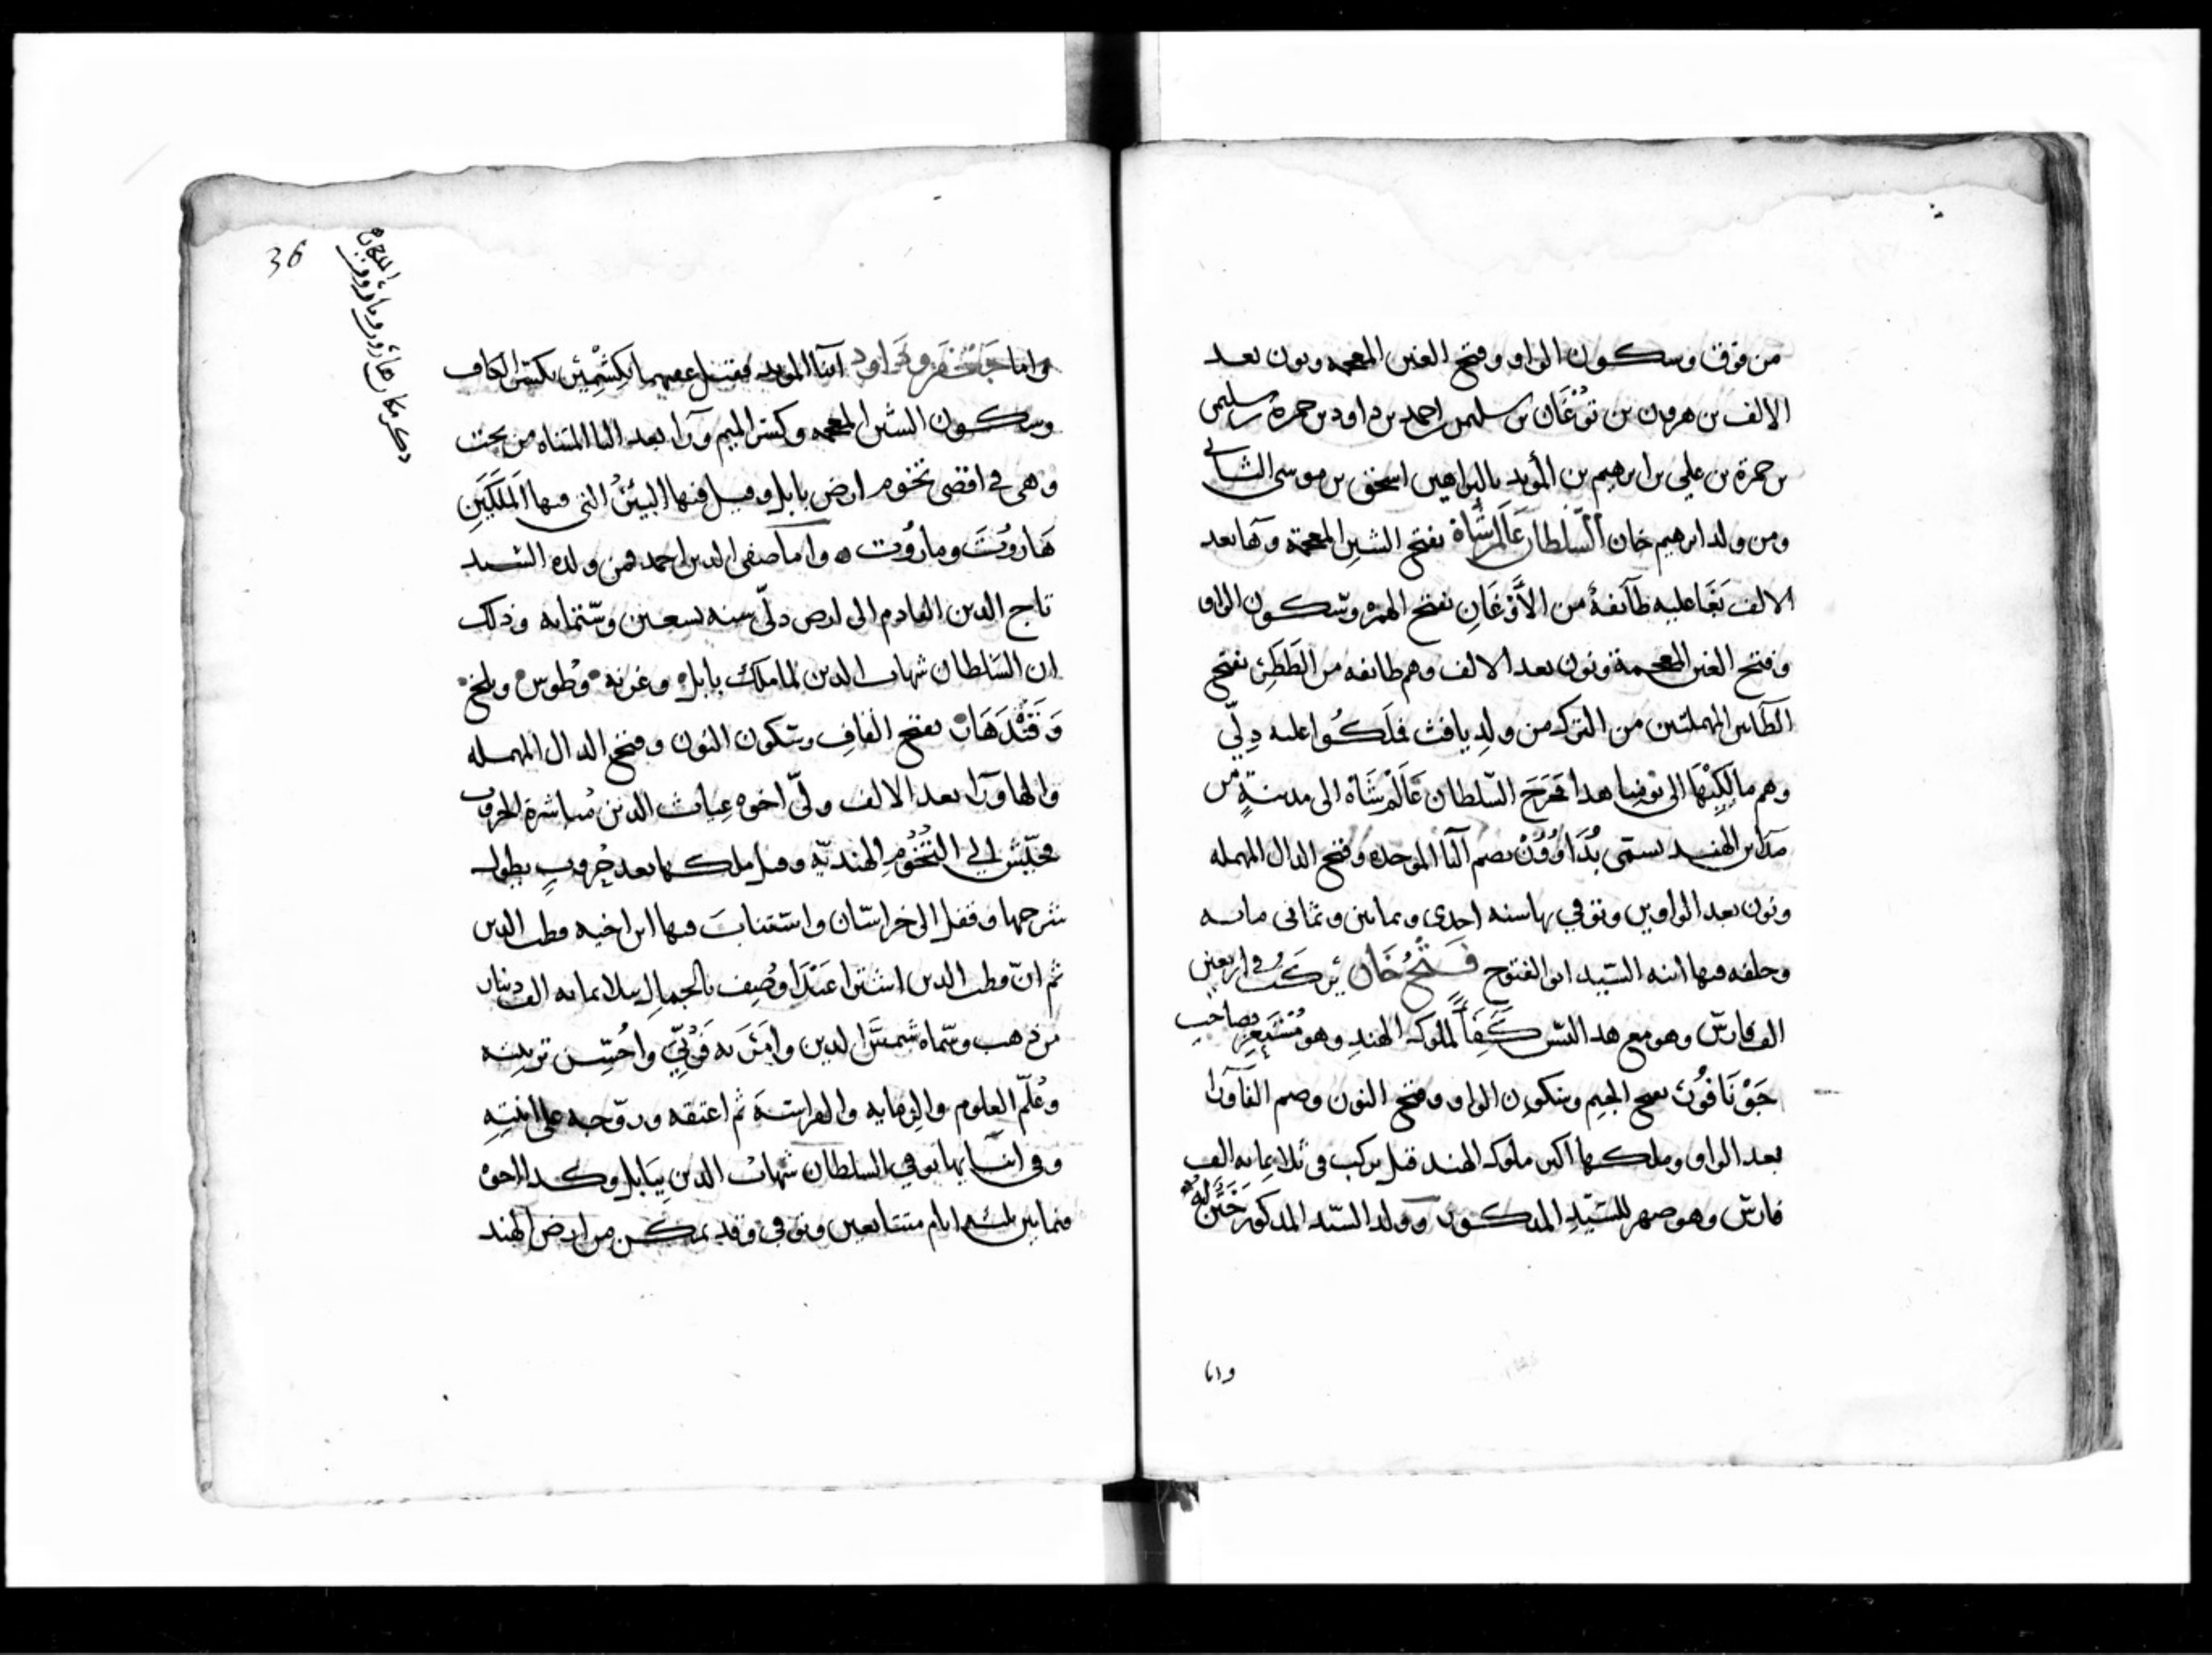 من فوق وسكون الواو وفتح الغين المعجمه ونون بعد
الالف بن هرون بن تَوْغَان بن سليمن بن احمد بن داود بن حمزة بن سليمن
بن حمزة بن علي بن ابرهيم بن المؤيد بالبراهين اسحق بن موسى الثاني
ومن ولد ابرهيم خان السّلطان عَالَمْ شَاهْ بفتح الشين المعجمة وهآ بعد
الالف بَغَا عليه طآئفة من الأَوْغَانِ بفتح الهمزه وسكون الواو
وفتح الغين المعجمة ونون بعد الالف وهم طائفه من الطَطَر بفتح
الطآئين المهملتين من الترك من ولد يافث فملَكُوا عليه دِلّي
وهم مالِكِيْهَا الى يومنا هدا فخرَجَ السّلطان عَالَمْ شَاه الى مدينةٍ من
مدآئن الهند تسمى بُدَاوُوْن بضم البا الموحده وفتح الدال المهمله
ونون بعد الواوين وتوفي بها سنه احدى وثمانين وثماني مايه
وخلفه فيها ابنه السّيد ابو الفتوح فَتْحُ خَان يركَبُ في اربعين
الف فارس وهو مع هد السّن كَفِأً لملوك الهند وهو صاحب
جَوْنَافُوْر بفتح الجيم وسكون الواو وفتح النون وضم الفا ورا
بعد الواو وملكها اكبر ملوك الهند قيل يركب في ثلاثمايه الف
فارس وهو صهر للسّيّدِ المدكور وولد السّيد المدكور
واما
واما جَعْفَر وَدَاود ابنا المويد فقيل عقبهما بِكِشْمِيْر بكسر الكاف
وسكون الشين المعجمه وكسر الميم ورا بعد اليا المثناه من تحت
وهي في اقصى تخوم ارض بابل وقيل فيها البيئرُ التي فيها المَلَكَيَنِ
هَارُوْتَ ومارُوْت ه واما صفي الدين احمد فمن ولده السّيد
تاج الدين القادم الى ارض دلّي سنه تسعين وسّتمايه وذلك
ان السّلطان شهاب الدين لما ملك بابل وغزنه وطُوس وبلخ
وَقَنْدَهَار بفتح القاف وسّكون النون وفتح الدال المهمله
والها ورا بعد الالف ولّى اخوه غياث الدين مُباشرة الحروب
فجَيّش الي التُخُوْمِ الهنديّه وقيل ملكها بعد حُروبٍ يطول
شرحها وقفل الى خراسّان واستناب فيها ابن اخيه قطب الدين
ثم انّ قطب الدين اشترا عَبْدًا وُصِف بالجمال بثلاثمايه الف دينار
من دهب وسمّاه شمسَ الدين وامَرَ به فَرُبِّيَ واُحْسِن تربيته
وعُلّم العلوم والرمايه والفراسَة ثم اعتقه وزوّجه على ابنتِهِ
وفي اثنايها توفي السلطان شهاب الدين بِبَابل وكدا اخوه
فيما بين ثلثه ايام متتابعين وتوفي وقد تمكن من ارض الهند
36
دكر مكان هاروت وماروت